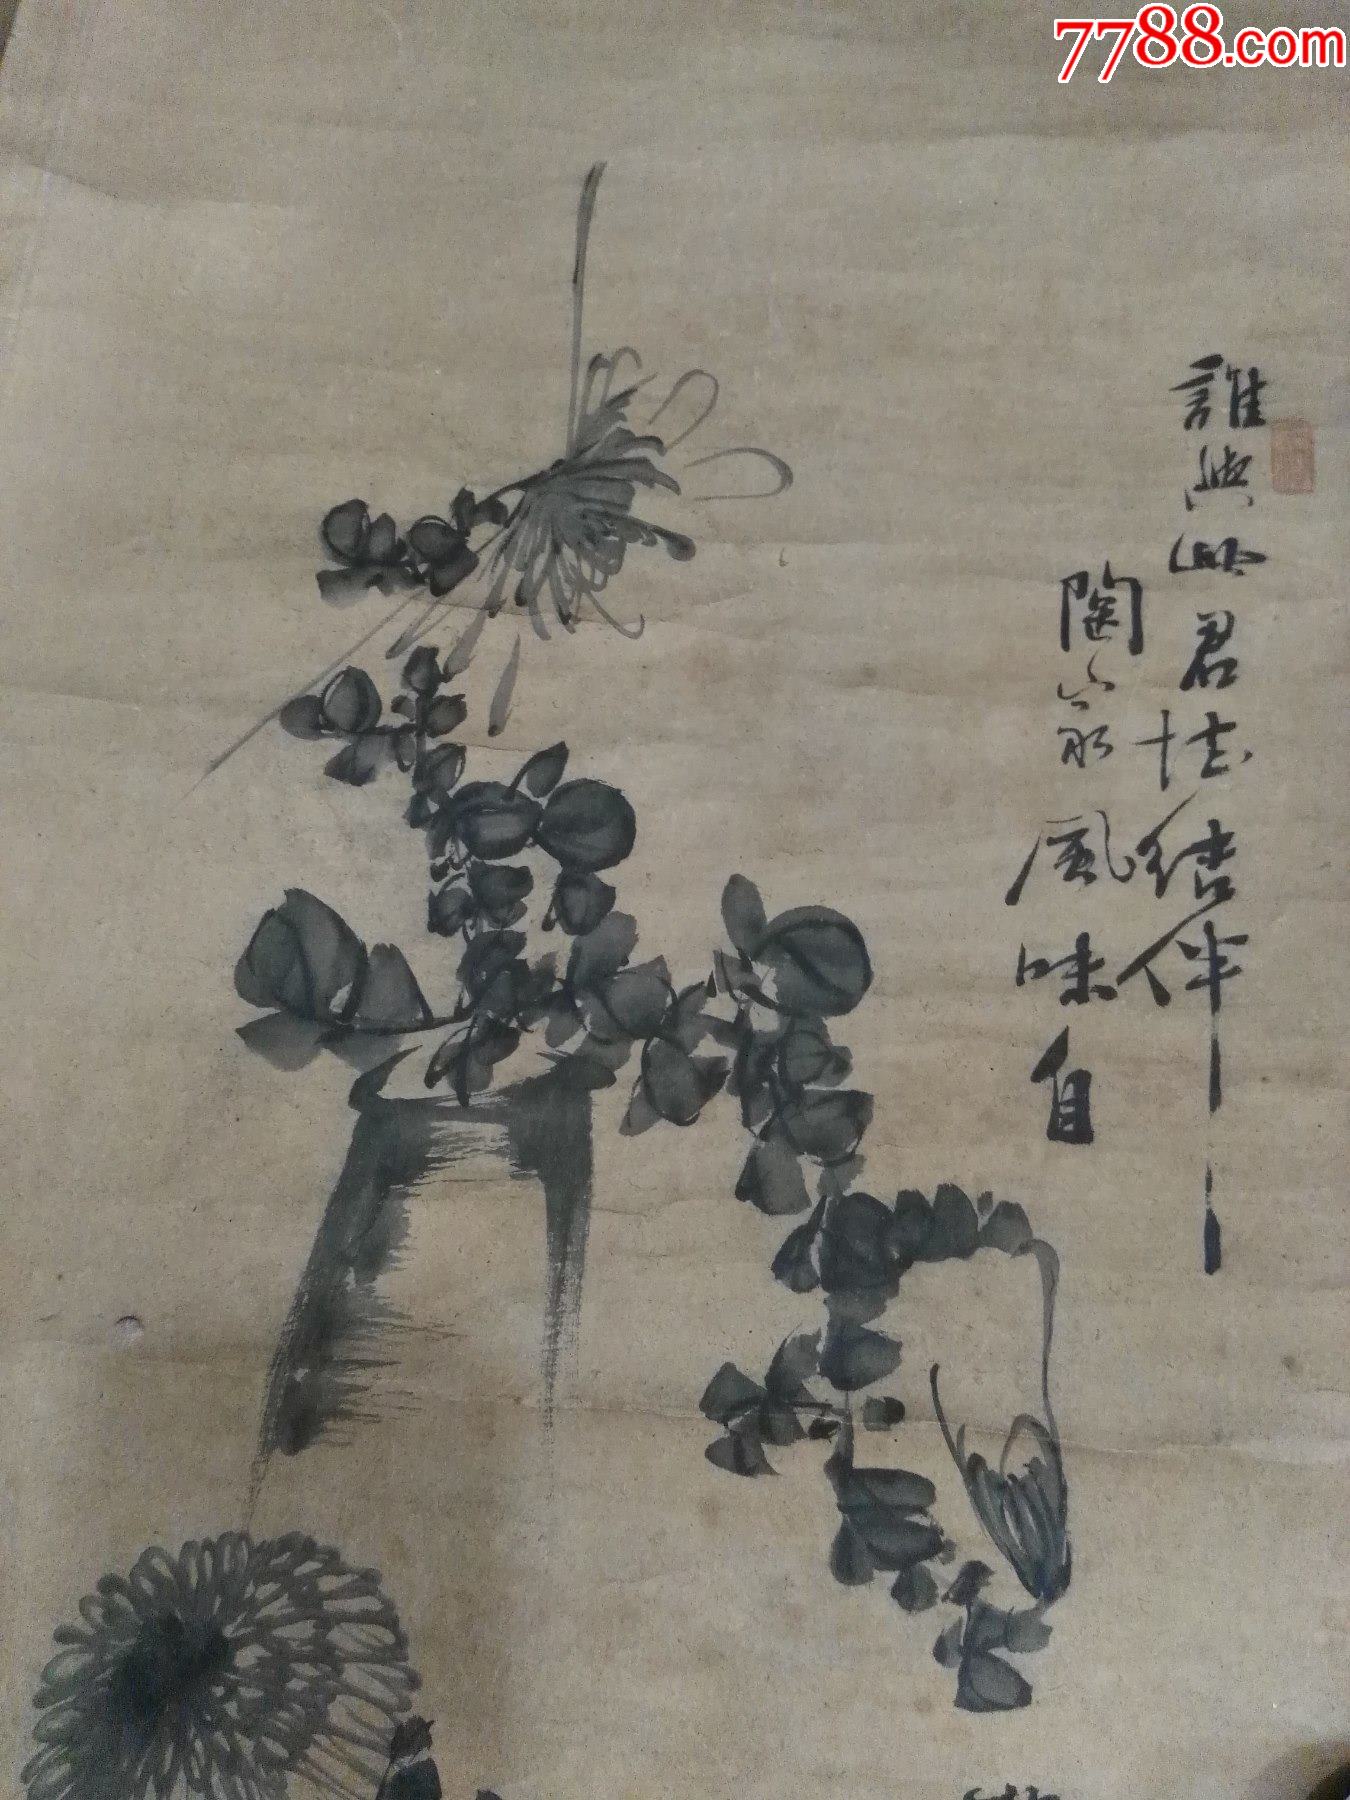 7788.com
誰與此君結伴
陶家風味自